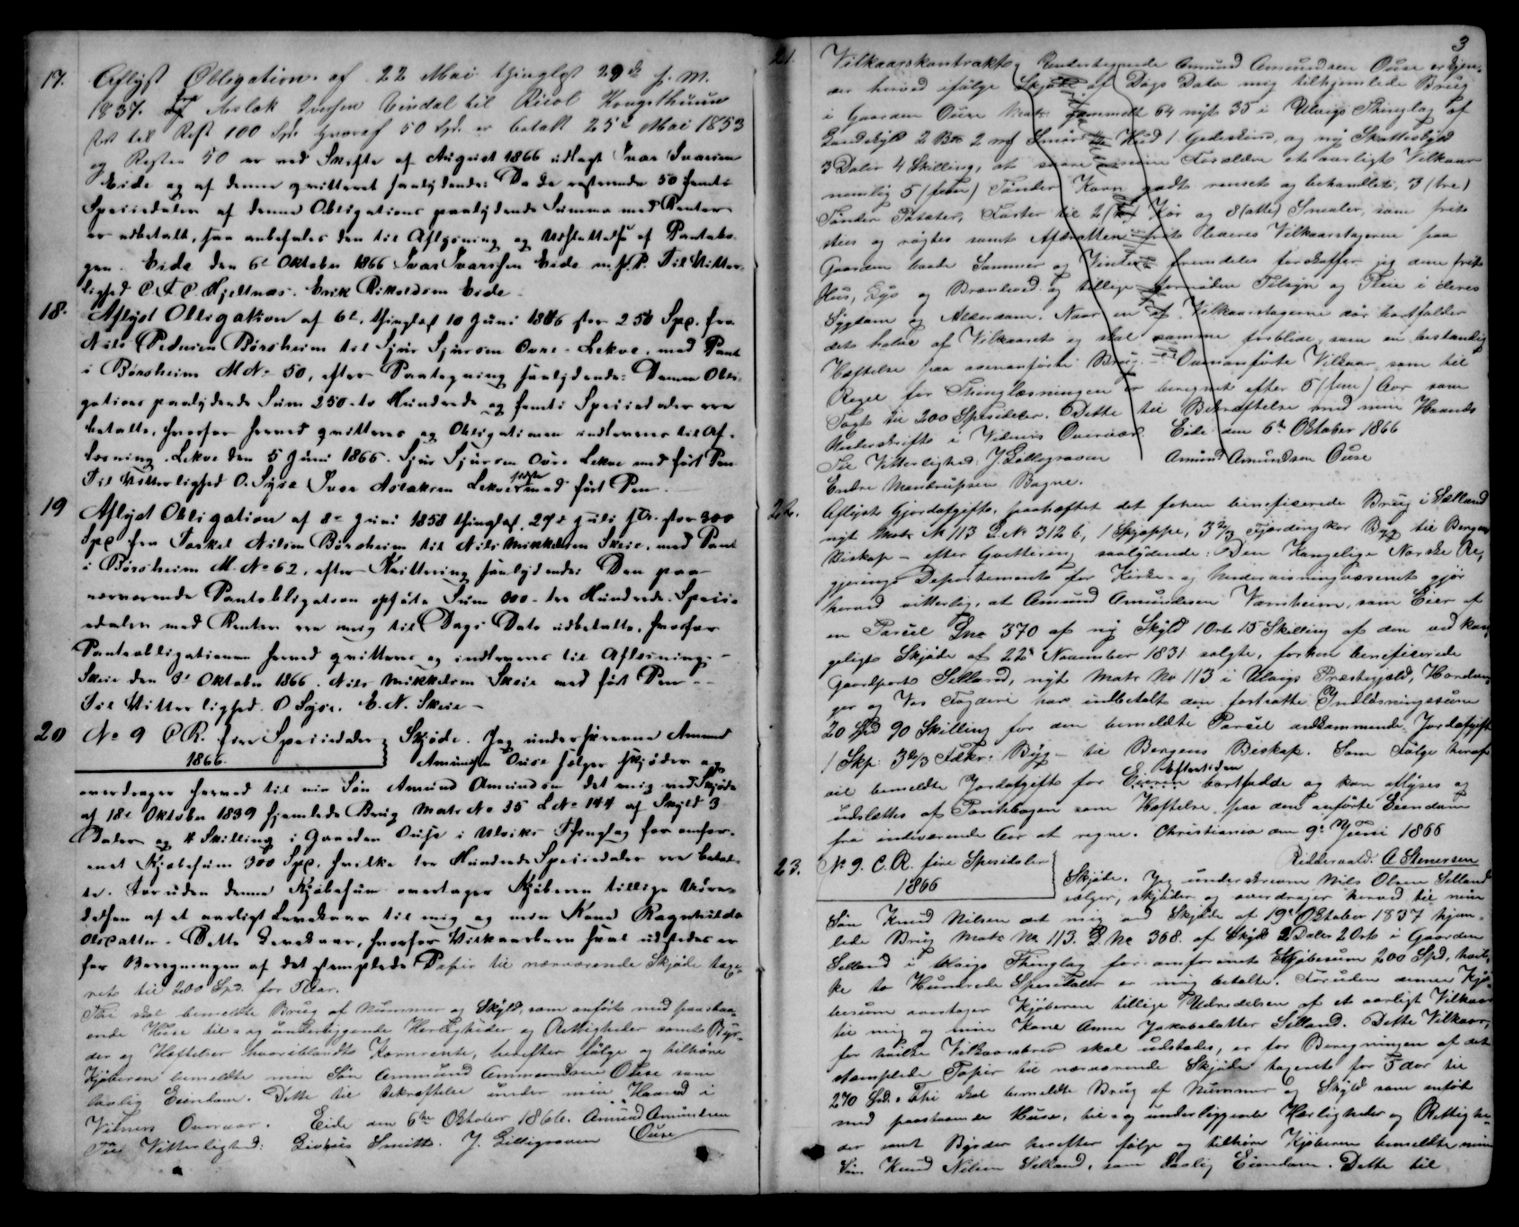 17. Aflyst Obligation af 22 Mai thinglyst 29de s. m.
1837. fra Aslak Eindal til
100 Spd. hvoraf 50 Spd. er betalt 25de Mai 1853
og Resten 50 er ved Skifte af August 1866 udlagt Ivar Ivarsen
Eide og af denne qvitteret saalydende: De resterende 50 femti
Speciedaler af denne Obligations paalydende Summa med Renter
er udbetalt, saa anbefales den til Aflysning og Udslettelse af Pantebo-
gen. Eide den 6te Oktober 1866 Ivar Ivarssen Eide m. f. P. Til Vitter-
lighed Hjeltnæs. Erik Eide.
18. Aflyst Obligation af 6te, thinglyst 10 Juni stor 250 Spd. fra
Nils Pedersen Børsheim til Sjur Sjursen Øvre-Lekve, med Pant
i Børsheim M No 50, efter Paategning saalydende: Denne Obli-
gations paalydende Sum 250-to Hundrede og femti Speciedaler ere
betalte, hvorfor herved qvitteres og Obligationen indleveres til Af-
læsning. Lekve den 5 Juni 1866. Sjur Sjursen Øvre Lekve med ført Pen
Til Vitterlighed O. Syse Ivar Aslaksen Lekve med ført Pen.
19 Aflyst Obligation af 8de Juni 1858 thinglyst 27de Juli stor 300
Spd fra Torkel Nilsen Børsheim til Nils Mikkelsen Skeie, med Pant
i Børsheim M. No 62, efter Kvittering saalydende: Den paa
nærværende Pantobligation opførte Sum 300-tre Hundrede Specie-
daler med Renter ere mig til Dags Dato udbetalte, hvorfor
Pantobligationen herved qvitteres og indleveres til Aflæsning.-
Skeie den 3de Oktober 1866. Nils Mikkelsen Skeie med ført Pen--
Til Vitterlighed. O Syse. E. N. Skeie-
20 No 9 C.R. fire Speciedaler Skjøde. Jeg underskrevne Amund
1866. Amundsen Ouse sælger skjøder og
overdrager herved til min Søn Amund Amundsen det mig ved Skjøde
af 18de Oktober 1839 hjemlede Brug Matr No 35 L No 144 af Skyld 3
Daler og 4 Skilling i Gaarden Ouse i Ulviks Thinglag for omfor-
enet Kjøbesum 300 Spd, hvilke tre Hundrede Speciedaler ere betal-
te. Foruden denne Kjøbesum overtager Kjøberen tillige Udre-
delsen af et aarligt Levekaar til mig og min Kone Ragnhilda
Olsdatter. Dette Levekaar, hvorfor Vilkaarsbrev skal udstedes er
for Beregningen af det stemplede Papir til nærværende Skjøde tage-
ret til 200 Spd. for 5 Aar.
Thi skal bemeldte Brug af Nummer og Skyld, som anført med paastaa-
ende Huse til- og underliggende Herligheder og Rettigheder samt Byr-
der og Heftelser hvoriblandt Kornrente, herefter følge og tilhøre
Kjøberen bemeldte min Søn Amund Amundsen Ouse som
lovlig Eiendom. Dette til bekræftelse under min Haand i
Vitners Overvær. Eide den 6te Oktober 1866. Amund Amundsen
Til Vitterlighed: Smith. J. Lillegraven Ouse
3
21. Vilkaarskontrakt. Undertegnede Amund Amundsen Ouse erkjen-
der herved ifølge Skjøde af Dags Dato mig tilhjemlede Brug
i Gaarden Ouse Matr. gammelt 64 nyt 35 i Ulviks Thinglag af
Landskyld 2 Hud 1 Gedeskind og ny Skatteskyld
3 Daler 4 Skilling, at svare mine Forældre et aarligt Vilkaar
nemlig 5 (fem) Tønder Korn godt renset og behandlet, 3 (tre)
Tønder Poteter, Foster til 2 (to) Kør og 8 (otte) Smaler, som frit
stes og røgtes samt Afdraatten frit leveres Vilkaarstagerne paa
Gaarden baade Sommer og Vinter fremdeles forskaffer jeg dem frit
Hus, Lys og Brænhved og tillige fornøden Tilsyn og Pleie i deres
Sygdom og Alderdom. Naar en af Vilkaarstagerne dør bortfalder
det halve af Vilkaaret og skal samme forblive som en bestandig
Heftelse paa ovenanførte Brug. Ovenanførte Vilkaar som til
Regel for Thinglæsningen er beregnet efter 5 (fem) Aar som
Taxt til 200 Spesidaler. Dette til Bekræftelse med min Haands
Underskrift i Vidners Overvær. Eide den 6te Oktober 1866
Til Vitterlighed: J. Lillegraven Amund Amundsen Ouse
Endre Mandrupsen Bagne.
22. Aflyst Gjordafgift, paaheftet det forhen beneficerede Brug i Sælland
nyt Matr No 113 L No 312 b, 1 Skjæppe, 3 2/3 Fjordingkar Byg til Bergens
Biskop - efter Qvittering saalydende: Den Kongelige Norske Re-
gjerings Departement for Kirke- og Undervisningsvæsenet gjør
herved vitterlig, at Amund Amundsen Vamheim, som Eier af
en Parcel Lno 370 af ny Skyld 1 Ort 15 Skilling af den ved kon-
geligt Skjøde af 22de November 1831 solgte, forhen beneficerede
Gaardpart Selland, nyt Matr No 113 i Ulviks Præstegjæld, Hardan-
ger og Vos Fogderi har indbetalt den fastsatte Indløsningssum
20 Spd 90 Skilling for den bemeldte Parcel vedkommende Jordafgift
1 Skp. 3 2/3 Fdkr. Byg - til Bergens Biskop. Som Følge heraf
vil bemeldte Jordafgift for Eftertiden bortfalde og kan aflyses og
udslettes af Pantebogen som Heftelse paa den anførte Eiendom
fra indeværende Aar at regne. Christiania den 9de Juni 1866
Riddervold. A Stenersen
23. No 9. C.R. fire Spesidaler Skjøde. Jeg underskrevne Nils Olsen Selland
1866 sælger, skjøder og overdrager herved til min
Søn Knud Nilsen det mig ved Skjøde af 19de Oktober 1837 hjem-
lede Brug Matr No 113. L No 368. af Skyld 2 Daler 2 Ort i Gaarden
Selland i Ulviks Thinglag for omforenet Kjøbesum 200 Spd, hvil-
ke to Hundrede Spesidaler er mig betalte. Foruden denne Kjø-
besum overtager Kjøberen tillige Udredelsen af et aarligt Vilkaar
til mig og min Kone Anna Jakobsdatter Selland. Dette Vilkaar,
for hvilket Vilkaarsbrev skal udstedes, er for Beregningen af det
stemplede Papir til nærværende Skjøde tageret for 5 Aar til
270 Spd. Thi skal bemeldte Brug af Nummer og Skyld som anført
med paastaaende Huse, til- og underliggende Herligheder og Rettighe-
der samt Byrder herefter følge og tilhøre Kjøberen bemeldte min
Søn Knud Nilsen Selland, som lovlig Eiendom. Dette til